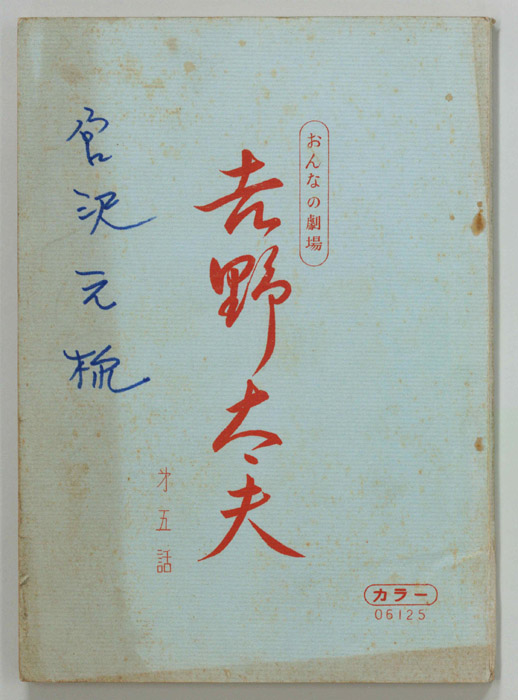 おんなの劇場
吉野太夫
才五話
宮沢元
カラー
06125